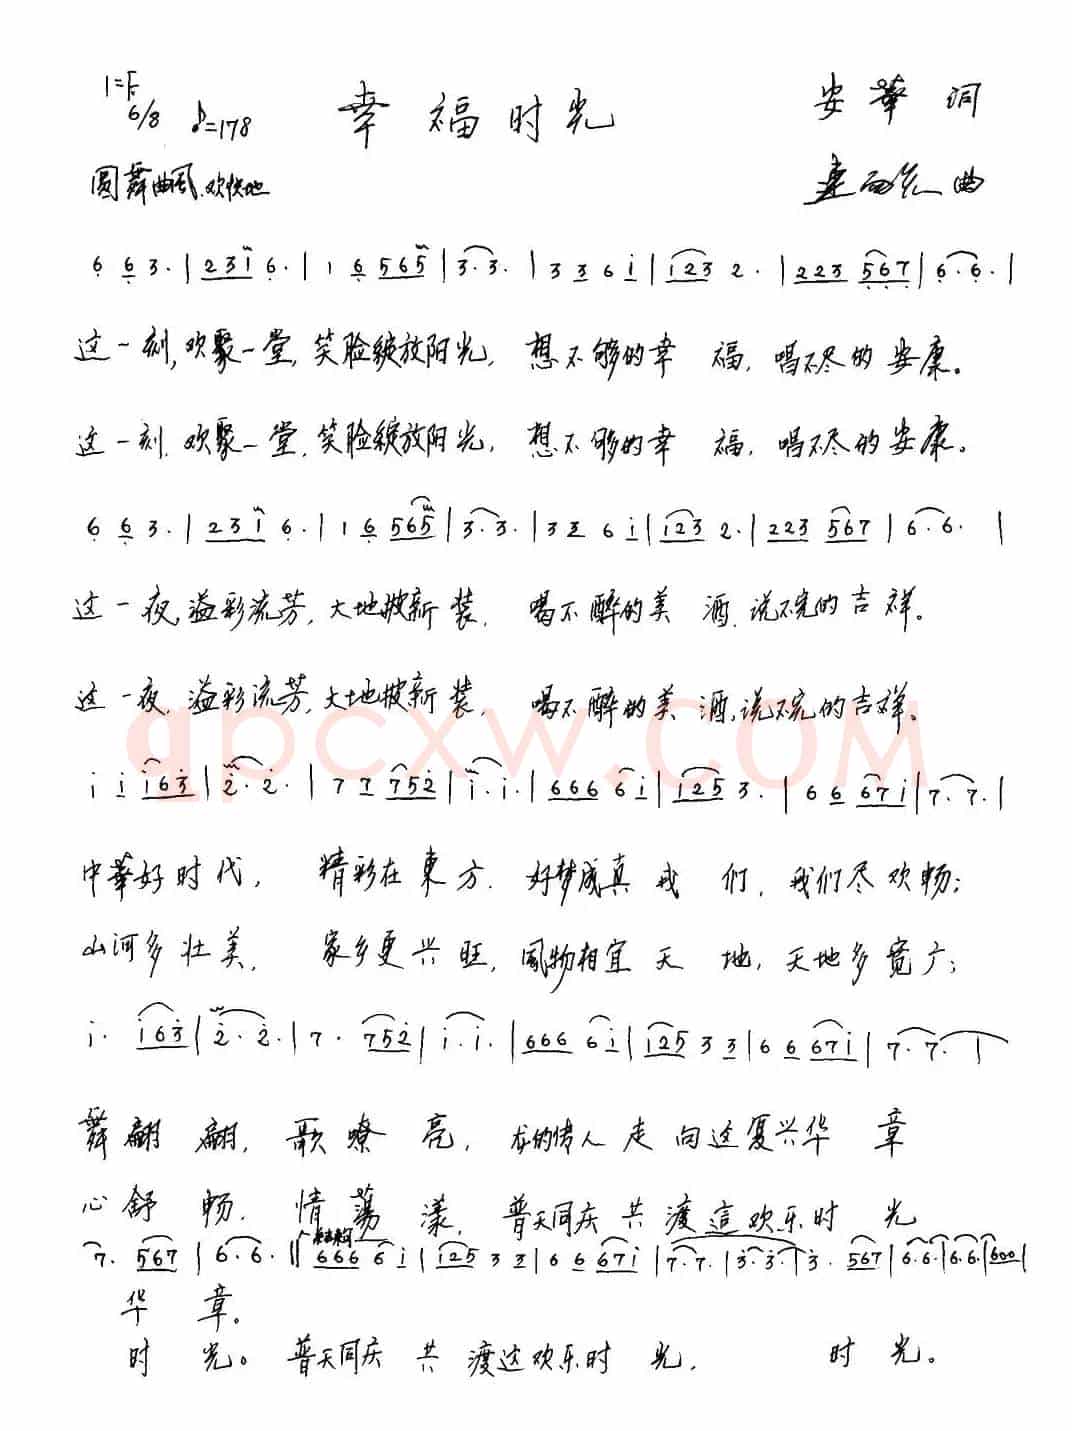 1=F
6/8 ♪=178 幸福时光 安華 词
圆舞曲風.欢快地 曲
6 6 3. | 2 3 1 6. | 1 6 5 6 5 | 3. 3. | 3 3 6 i | i 2 3 2. | 2 2 3 5 6 7 | 6. 6. |
这一刻,欢聚一堂,笑脸绽放阳光,想不够的幸福,唱不尽的安康。
这一刻.欢聚一堂,笑脸绽放阳光,想不够的幸福,唱不尽的安康。
6 6 3. | 2 3 1 6. | 1 6 5 6 5 | 3. 3. | 3 3 6 i | i 2 3 2. | 2 2 3 5 6 7 | 6. 6. |
这一夜,溢彩流芳,大地披新装,喝不醉的美酒.说不完的吉祥。
这一夜,溢彩流芳,大地披新装,喝不醉的美酒,说不完的吉祥。
qpcxw.COM
i i i 6 3 | 2. 2. | 7 7 7 5 2 | i. i. | 6 6 6 6 i | i 2 5 3. | 6 6 6 7 i | 7. 7. |
中華好时代,精彩在東方.好梦成真我们,我们尽欢畅;
山河多壮美,家乡更兴旺,風物相宜天地,天地多宽广;
i. i 6 3 | 2. 2. | 7. 7 5 2 | i. i. | 6 6 6 6 i | i 2 5 3 3 | 6 6 6 7 i | 7. 7. |
舞翩翩,歌嘹亮,龙的传人走向这复兴华章
心舒畅.情荡漾,普天同庆共渡這欢乐时光
7. 5 6 7 | 6. 6. || 结束句 6 6 6 6 i | i 2 5 3 3 | 6 6 6 7 i | 7. 7. | 3. 3. | 3. 5 6 7 | 6. 6. | 6. 6. | 6 0 0 |
华章。
时光。普天同庆共渡这欢乐时光,时光。